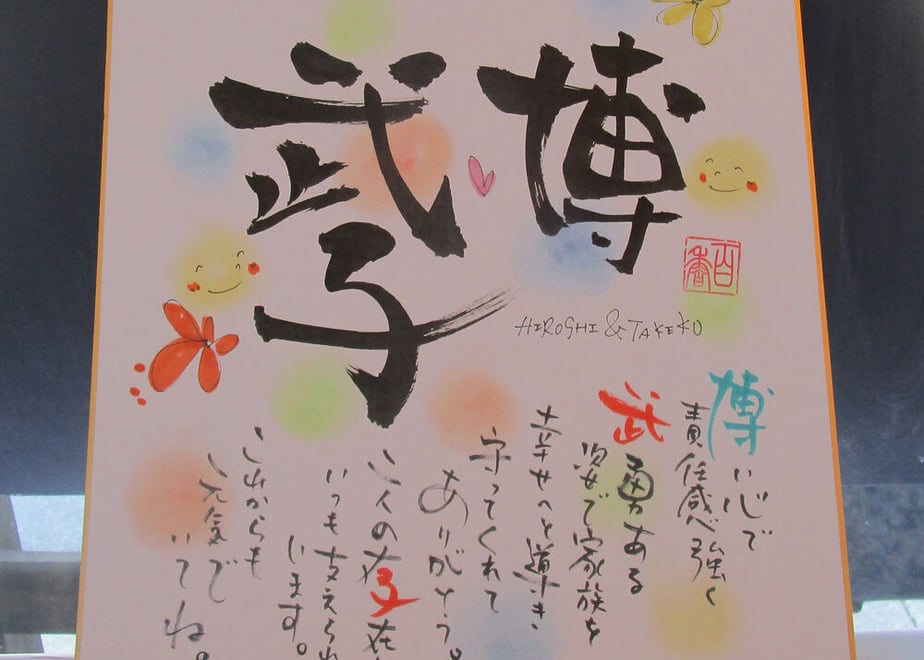 博
武子
HIROSHI & TAKEKO
博い心で
責任感強く
武勇ある
姿で家族を
幸せへと導き
守ってくれて
ありがとう。
二人の存在
いつも支えられ
います。
これからも
元気で
いてね。